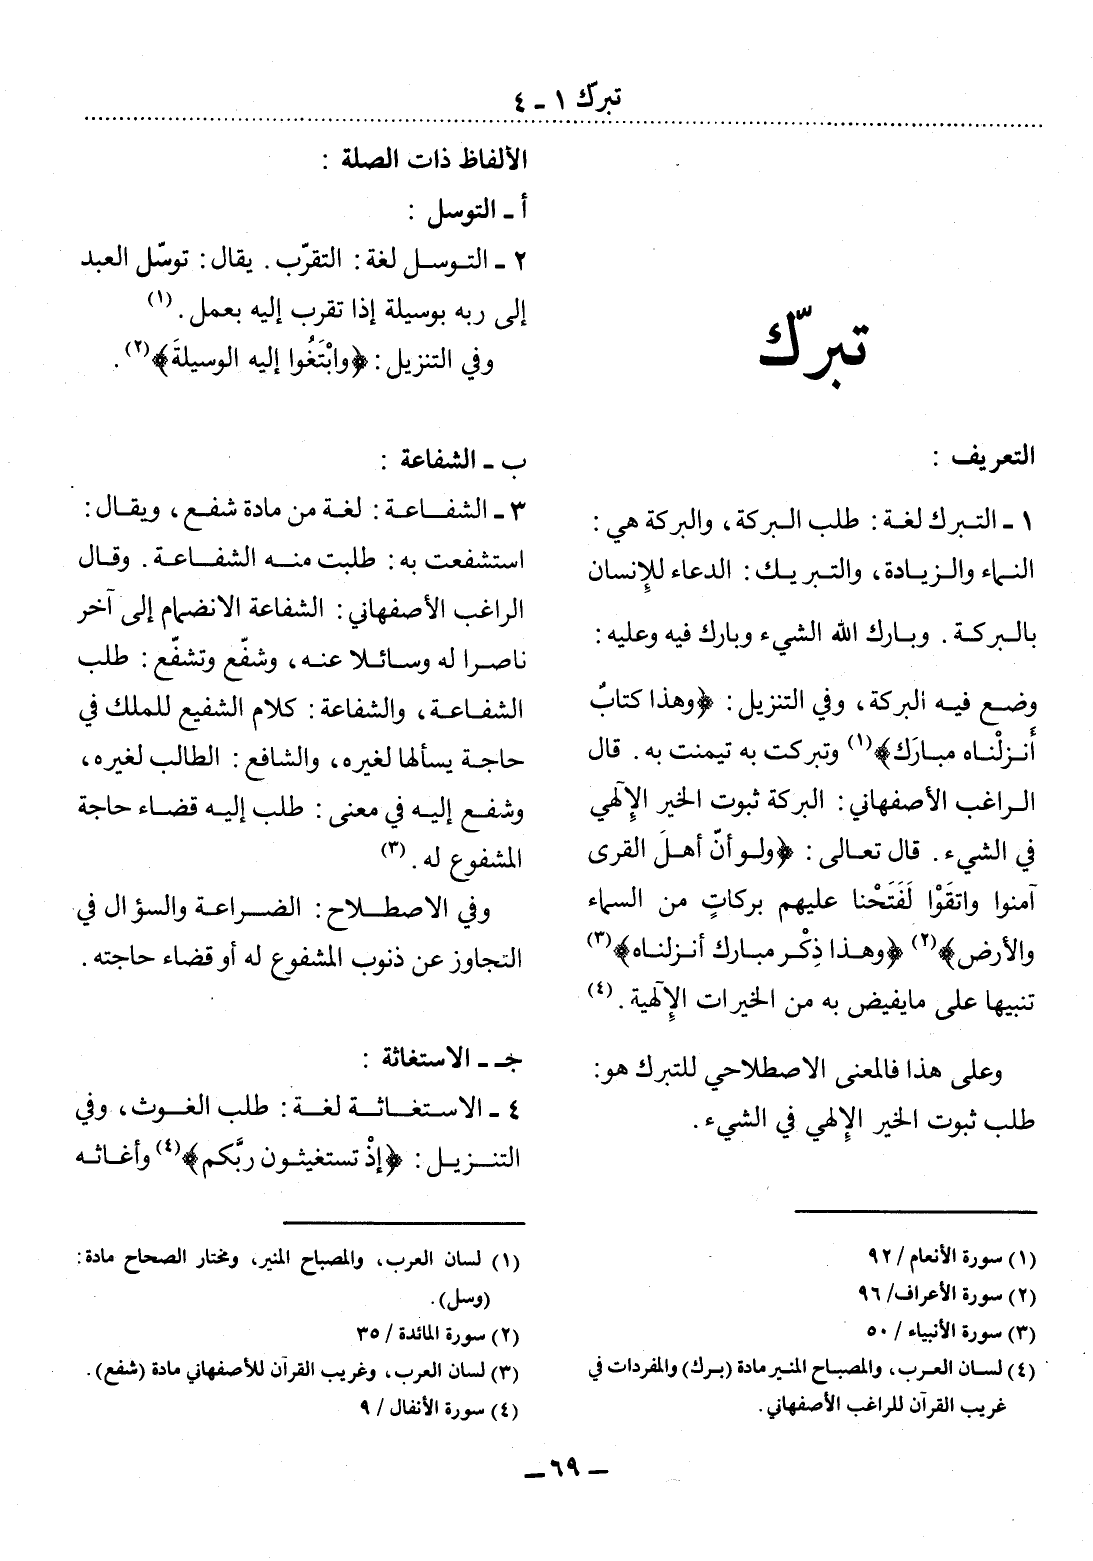 تبرك ١ ـ ٤
تبرّك
التعريف :
١ ـ التبرك لغة : طلب البركة ، والبركة هي :
النماء والزيادة ، والتبريك : الدعاء للإنسان
بالبركة . وبارك الله الشيء وبارك فيه وعليه :
وضع فيه البركة ، وفي التنزيل : ﴿وهذا كتابٌ
أَنزلْناه مبارَك﴾(١) وتبركت به تيمنت به . قال
الراغب الأصفهاني : البركة ثبوت الخير الإلهي
في الشيء . قال تعالى : ﴿ولو أنّ أهلَ القرى
آمنوا واتقَوْا لَفَتَحْنا عليهم بركاتٍ من السماء
والأرض﴾(٢) ﴿وهذا ذِكْر مبارك أنزلناه﴾(٣)
تنبيها على مايفيض به من الخيرات الإلهية . (٤)
وعلى هذا فالمعنى الاصطلاحي للتبرك هو :
طلب ثبوت الخير الإلهي في الشيء .
(١) سورة الأنعام / ٩٢
(٢) سورة الأعراف/ ٩٦
(٣) سورة الأنبياء / ٥٠
(٤) لسان العرب، والمصباح المنير مادة (برك) والمفردات في
غريب القرآن للراغب الأصفهاني.
الألفاظ ذات الصلة :
أ ـ التوسل :
٢ ـ التوسل لغة : التقرّب . يقال : توسّل العبد
إلى ربه بوسيلة إذا تقرب إليه بعمل . (١)
وفي التنزيل : ﴿وابْتَغُوا إليه الوسيلةَ﴾(٢) .
ب ـ الشفاعة :
٣ ـ الشفاعة : لغة من مادة شفع ، ويقال :
استشفعت به : طلبت منه الشفاعة . وقال
الراغب الأصفهاني : الشفاعة الانضمام إلى آخر
ناصرا له وسائلا عنه ، وشفّع وتشفّع : طلب
الشفاعة ، والشفاعة : كلام الشفيع للملك في
حاجة يسألها لغيره ، والشافع : الطالب لغيره ،
وشفع إليه في معنى : طلب إليه قضاء حاجة
المشفوع له . (٣)
وفي الاصطلاح : الضراعة والسؤال في
التجاوز عن ذنوب المشفوع له أو قضاء حاجته .
جـ ـ الاستغاثة :
٤ ـ الاستغاثة لغة : طلب الغوث ، وفي
التنزيل : ﴿إذْ تستغيثون ربَّكم﴾(٤) وأغاثه
(١) لسان العرب، والمصباح المنير، ومختار الصحاح مادة :
(وسل).
(٢) سورة المائدة / ٣٥
(٣) لسان العرب، وغريب القرآن للأصفهاني مادة (شفع).
(٤) سورة الأنفال / ٩
ـ ٦٩ ـ